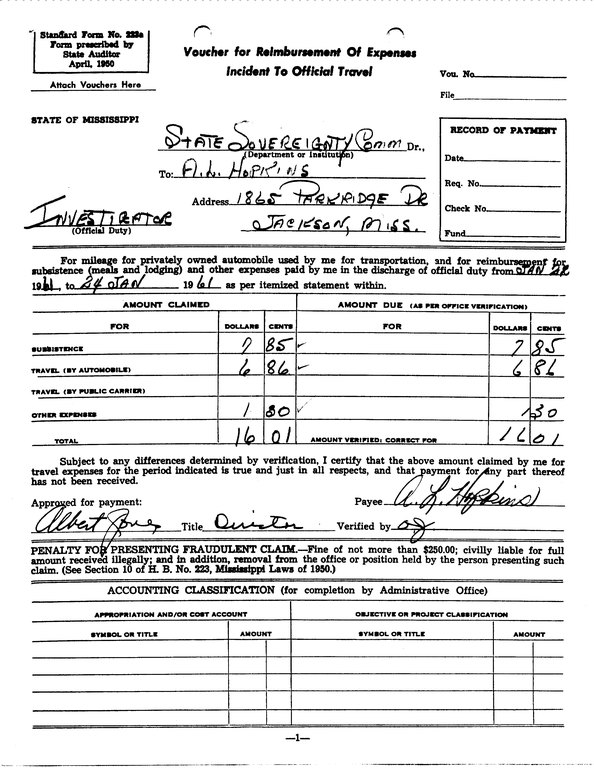 Standard Form No. 223a
Form prescribed by
State Auditor
April, 1950
Attach Vouchers Here
Voucher for Reimbursement Of Expenses
Incident To Official Travel
Vou. No.
File
STATE OF MISSISSIPPI
STATE SOVEREIGNTY Comm Dr.,
(Department or Institution)
To: A.L. HOPKINS
Address 1865 PARKRIDGE DR
JACKSON, MISS.
INVESTIGATOR
(Official Duty)
RECORD OF PAYMENT
Date
Req. No.
Check No.
Fund
For mileage for privately owned automobile used by me for transportation, and for reimbursement for
subsistence (meals and lodging) and other expenses paid by me in the discharge of official duty from JAN
1961, to 24 JAN 1961 as per itemized statement within.
AMOUNT CLAIMED AMOUNT DUE (AS PER OFFICE VERIFICATION)
FOR DOLLARS CENTS FOR DOLLARS CENTS
SUBSISTENCE 7 85 7 85
TRAVEL (BY AUTOMOBILE) 6 86 6 86
TRAVEL (BY PUBLIC CARRIER)
OTHER EXPENSES 1 30 1 30
TOTAL 16 01 AMOUNT VERIFIED: CORRECT FOR 16 01
Subject to any differences determined by verification, I certify that the above amount claimed by me for
travel expenses for the period indicated is true and just in all respects, and that payment for any part thereof
has not been received.
Approved for payment: Payee A. L. Hopkins
Albert Jones Title Director Verified by
PENALTY FOR PRESENTING FRAUDULENT CLAIM.—Fine of not more than $250.00; civilly liable for full
amount received illegally; and in addition, removal from the office or position held by the person presenting such
claim. (See Section 10 of H. B. No. 223, Mississippi Laws of 1950.)
ACCOUNTING CLASSIFICATION (for completion by Administrative Office)
APPROPRIATION AND/OR COST ACCOUNT OBJECTIVE OR PROJECT CLASSIFICATION
SYMBOL OR TITLE AMOUNT SYMBOL OR TITLE AMOUNT
—1—